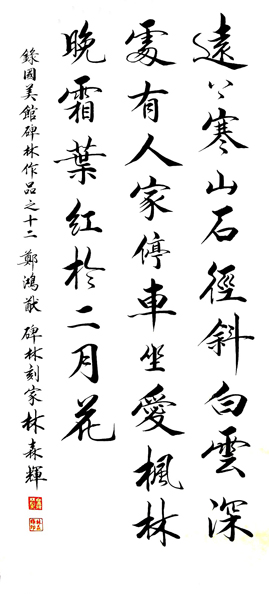 遠〻寒山石徑斜白雲深
處有人家停車坐愛楓林
晚霜葉紅於二月花
錄國美館碑林作品之十二 鄭鴻猷 碑林刻家林森輝